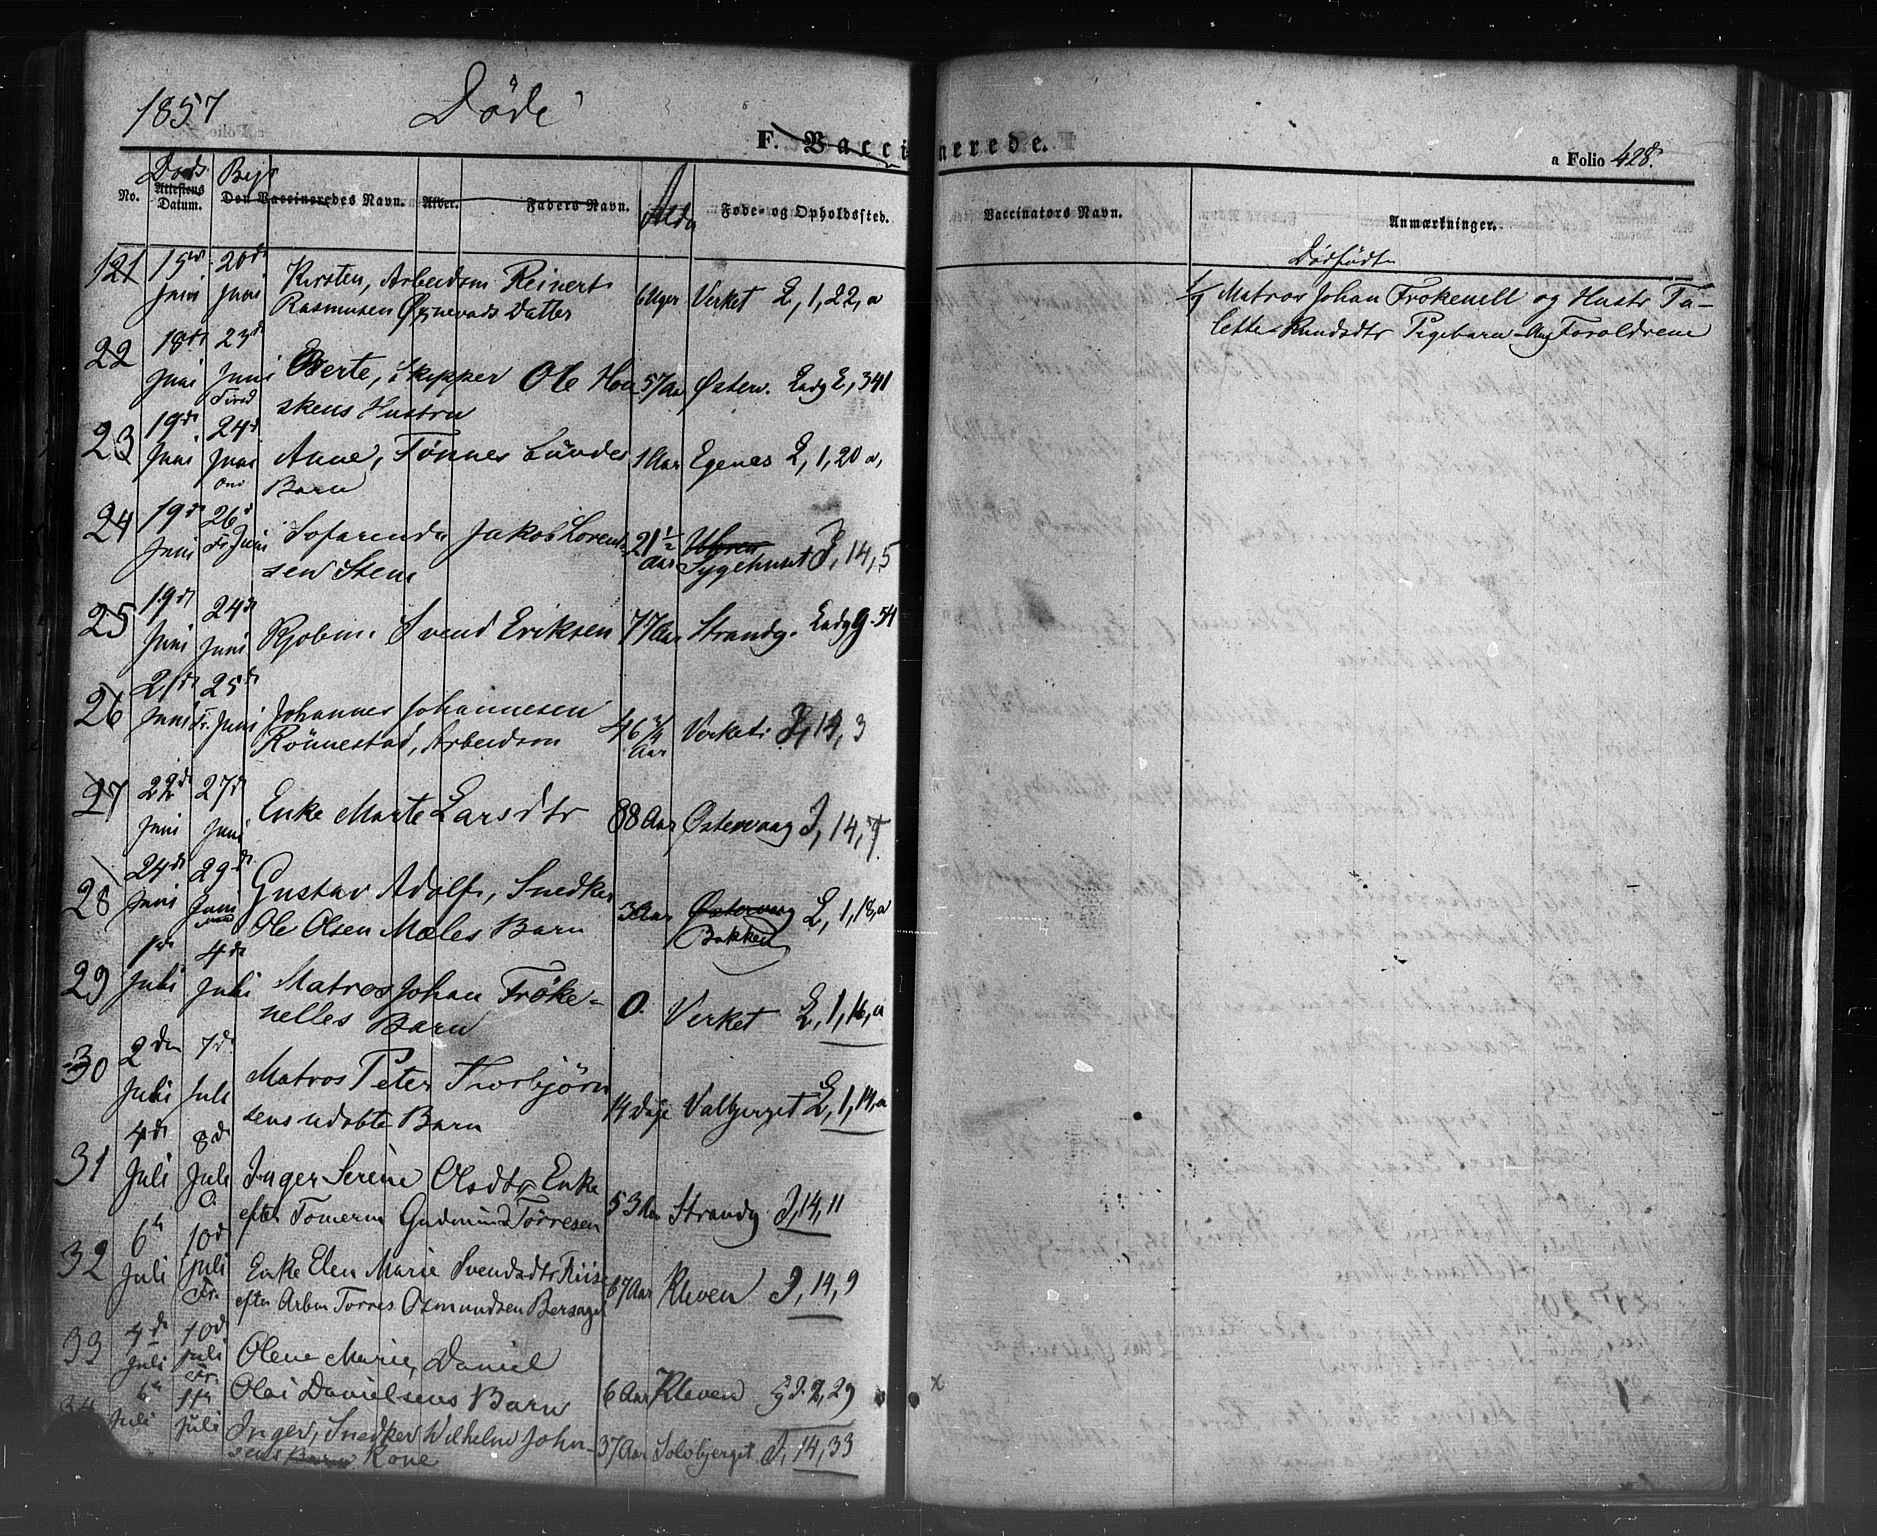 1857 Døde
F. Vaccinerede.
a Folio 428.
Døds Begr
No. Attestens Datum. Den Vaccineredes Navn. Alder. Faders Navn. Alder Føde- og Opholdssted. Vaccinators Navn. Anmærkninger.
Dødfødte
121 15de Juni 20de Juni Kirsten, Arbeidsm Reinert
Rasmusen Øgnevads Datter 6 Uger Verket L, 1, 22, a
1/7 Matros Johan Frøkenell og Hustr Ta-
lette Knudsdtr Pigebarn Ang Foroldrene
22 18de Juni 23de Juni Berte, Skipper Ole Hou
skens Hustru 57 Aar Østerv. L, 341
23 19de Juni 24de Juni Anne, Tønnes Lündes
Barn 1 Aar Egenes L, 1, 20 a,
24 19de Juni 26de Juni Jakob Lorent-
sen Stene 21 1/2 Aar Sygehuset J, 14, 5
25 19de Juni 24de Juni Kjøbm. Svend Eriksen 77 Aar Strandg. 54
26 21de Juni 25de Fr. Juni Johannes Johannesen
Rönnestad, Arbeidsm 46 3/4 Aar Verket J, 14, 3
27 22de Juni 27de Juni Enke Marte Larsdtr 88 Aar Østervaag J, 14, 7
28 24de Juni 29de Juni Gustav Adolf, Snedker
Ole Olsen Mæles Barn 3 Aar Østervaag Bakken L, 1, 18, a
29 1de Juli 4de Juli Matros Johan Frøke-
nelles Barn 0. Verket L, 1, 16, a
30 2den Juli 7de Juli Matros Peter Thorbjörn
sens udøbte Barn 14 Dage Valbjerget L, 1, 14, a
31 4de Juli 8de Juli O. Inger Serine Olsdtr, Enke
efter Tømerm Gudmund Tørresen 53 Aar Strandg J, 14, 11
32 6te Juli 10de Juli Fr. Enke Elen Marie Svendsdtr Riise
efter Arbm Torres Osmundsen Bersagel 67 Aar Kleven J, 14, 9
33 4de Juli 10de Juli Fr. Olene Marie, Daniel
Olai Danielsens Barn 6 Aar Kleven J. 2, 29
34 6te Juli 11te Juli Inger, Snedker Wilhelm John-
sens Barn Kone 37 Aar Solvbjerget J, 14, 33